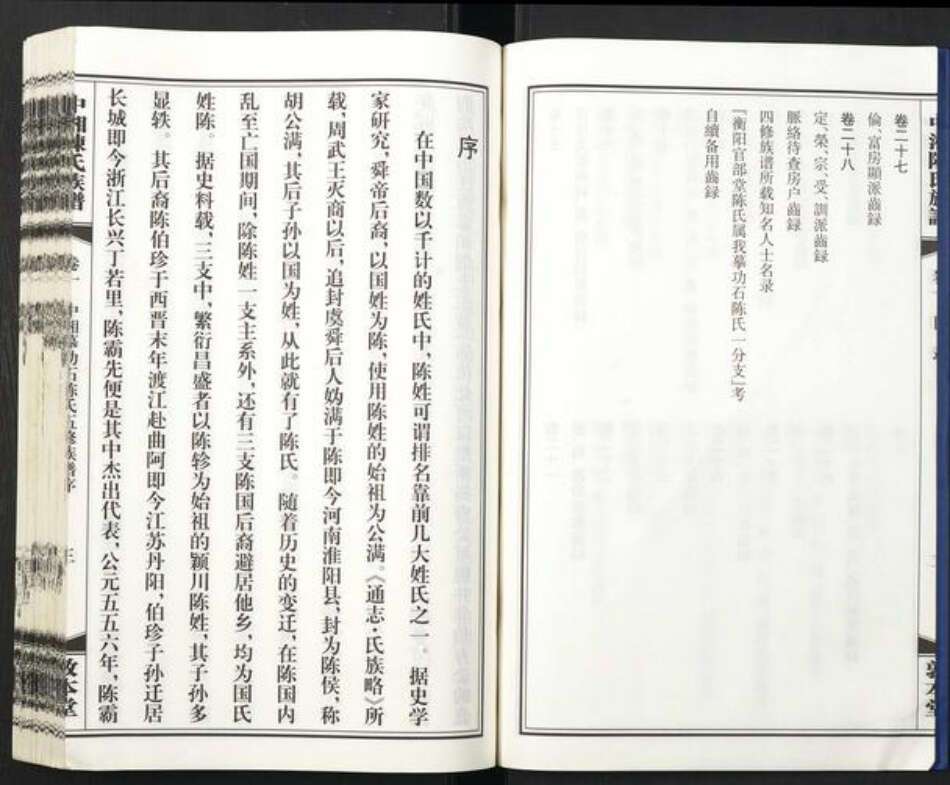 卷二十七
倫、富房顯派齒録
卷二十八
定、榮、宗、受、訓派齒録
脈絡待查房户齒録
四修族谱所载知名人士名录
『衡阳官部堂陈氏属我摹功石陈氏一分支』考
自續备用齒録
序
在中国数以千计的姓氏中，陈姓可谓排名靠前几大姓氏之一。据史学
家研究，舜帝后裔，以国姓为陈，使用陈姓的始祖为公满。《通志·氏族略》所
载，周武王灭商以后，追封虞舜后人妫满于陈即今河南淮阳县，封为陈侯，称
胡公满，其后子孙以国为姓，从此就有了陈氏。随着历史的变迁，在陈国内
乱至亡国期间，除陈姓一支主系外，还有三支陈国后裔避居他乡，均为国氏
姓陈。据史料载，三支中，繁衍昌盛者以陈轸为始祖的颖川陈姓，其子孙多
显轶。其后裔陈伯珍于西晋末年渡江赴曲阿即今江苏丹阳，伯珍子孙迁居
长城即今浙江长兴丁若里，陈霸先便是其中杰出代表，公元五五六年，陈霸
中湘陳氏族谱
卷一
敦本堂